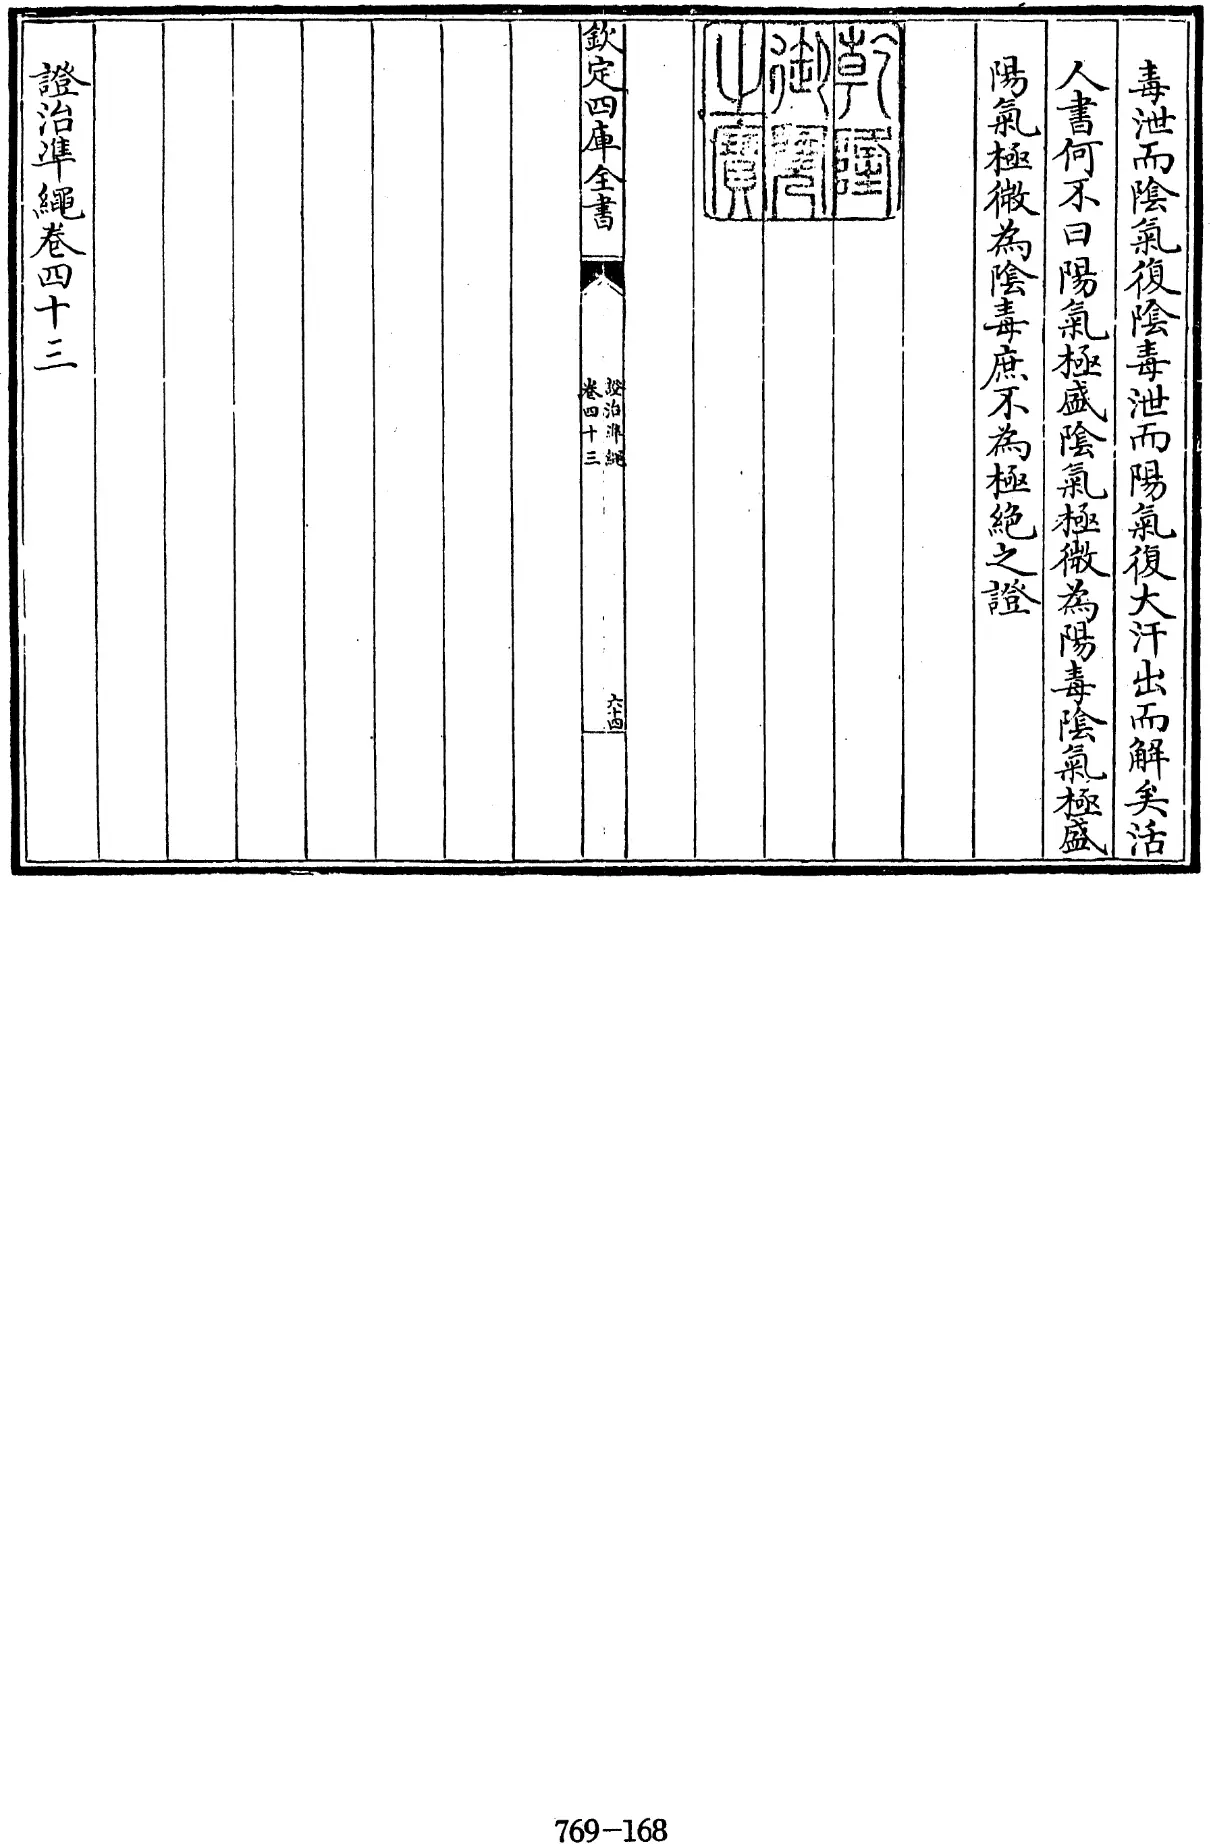 毒泄而陰氣復陰毒泄而陽氣復大汗出而解矣活
人書何不曰陽氣極盛陰氣極微為陽毒陰氣極盛
陽氣極微為陰毒庶不為極絶之證
乾隆
御覽
之寶
欽定四庫全書
證治準繩
卷四十三
六十四
證治準繩卷四十三
769-168